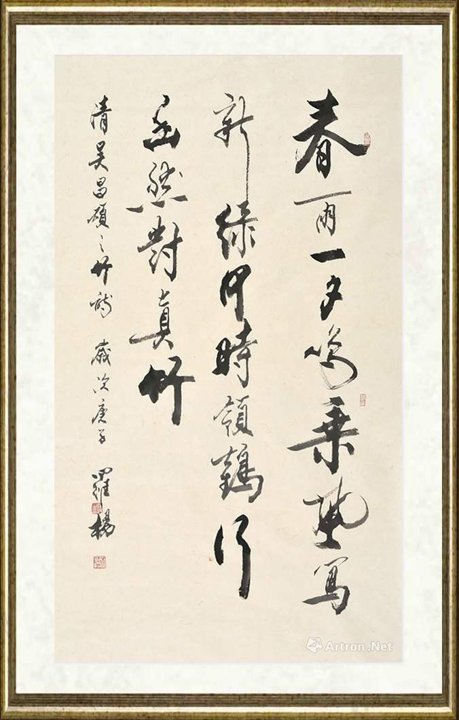 春雨一夕鳴乘勢寫
新綠何時領鶴行
幽然對真竹
清吴昌碩之竹詩 歲次庚子 羅楊
Artron.Net